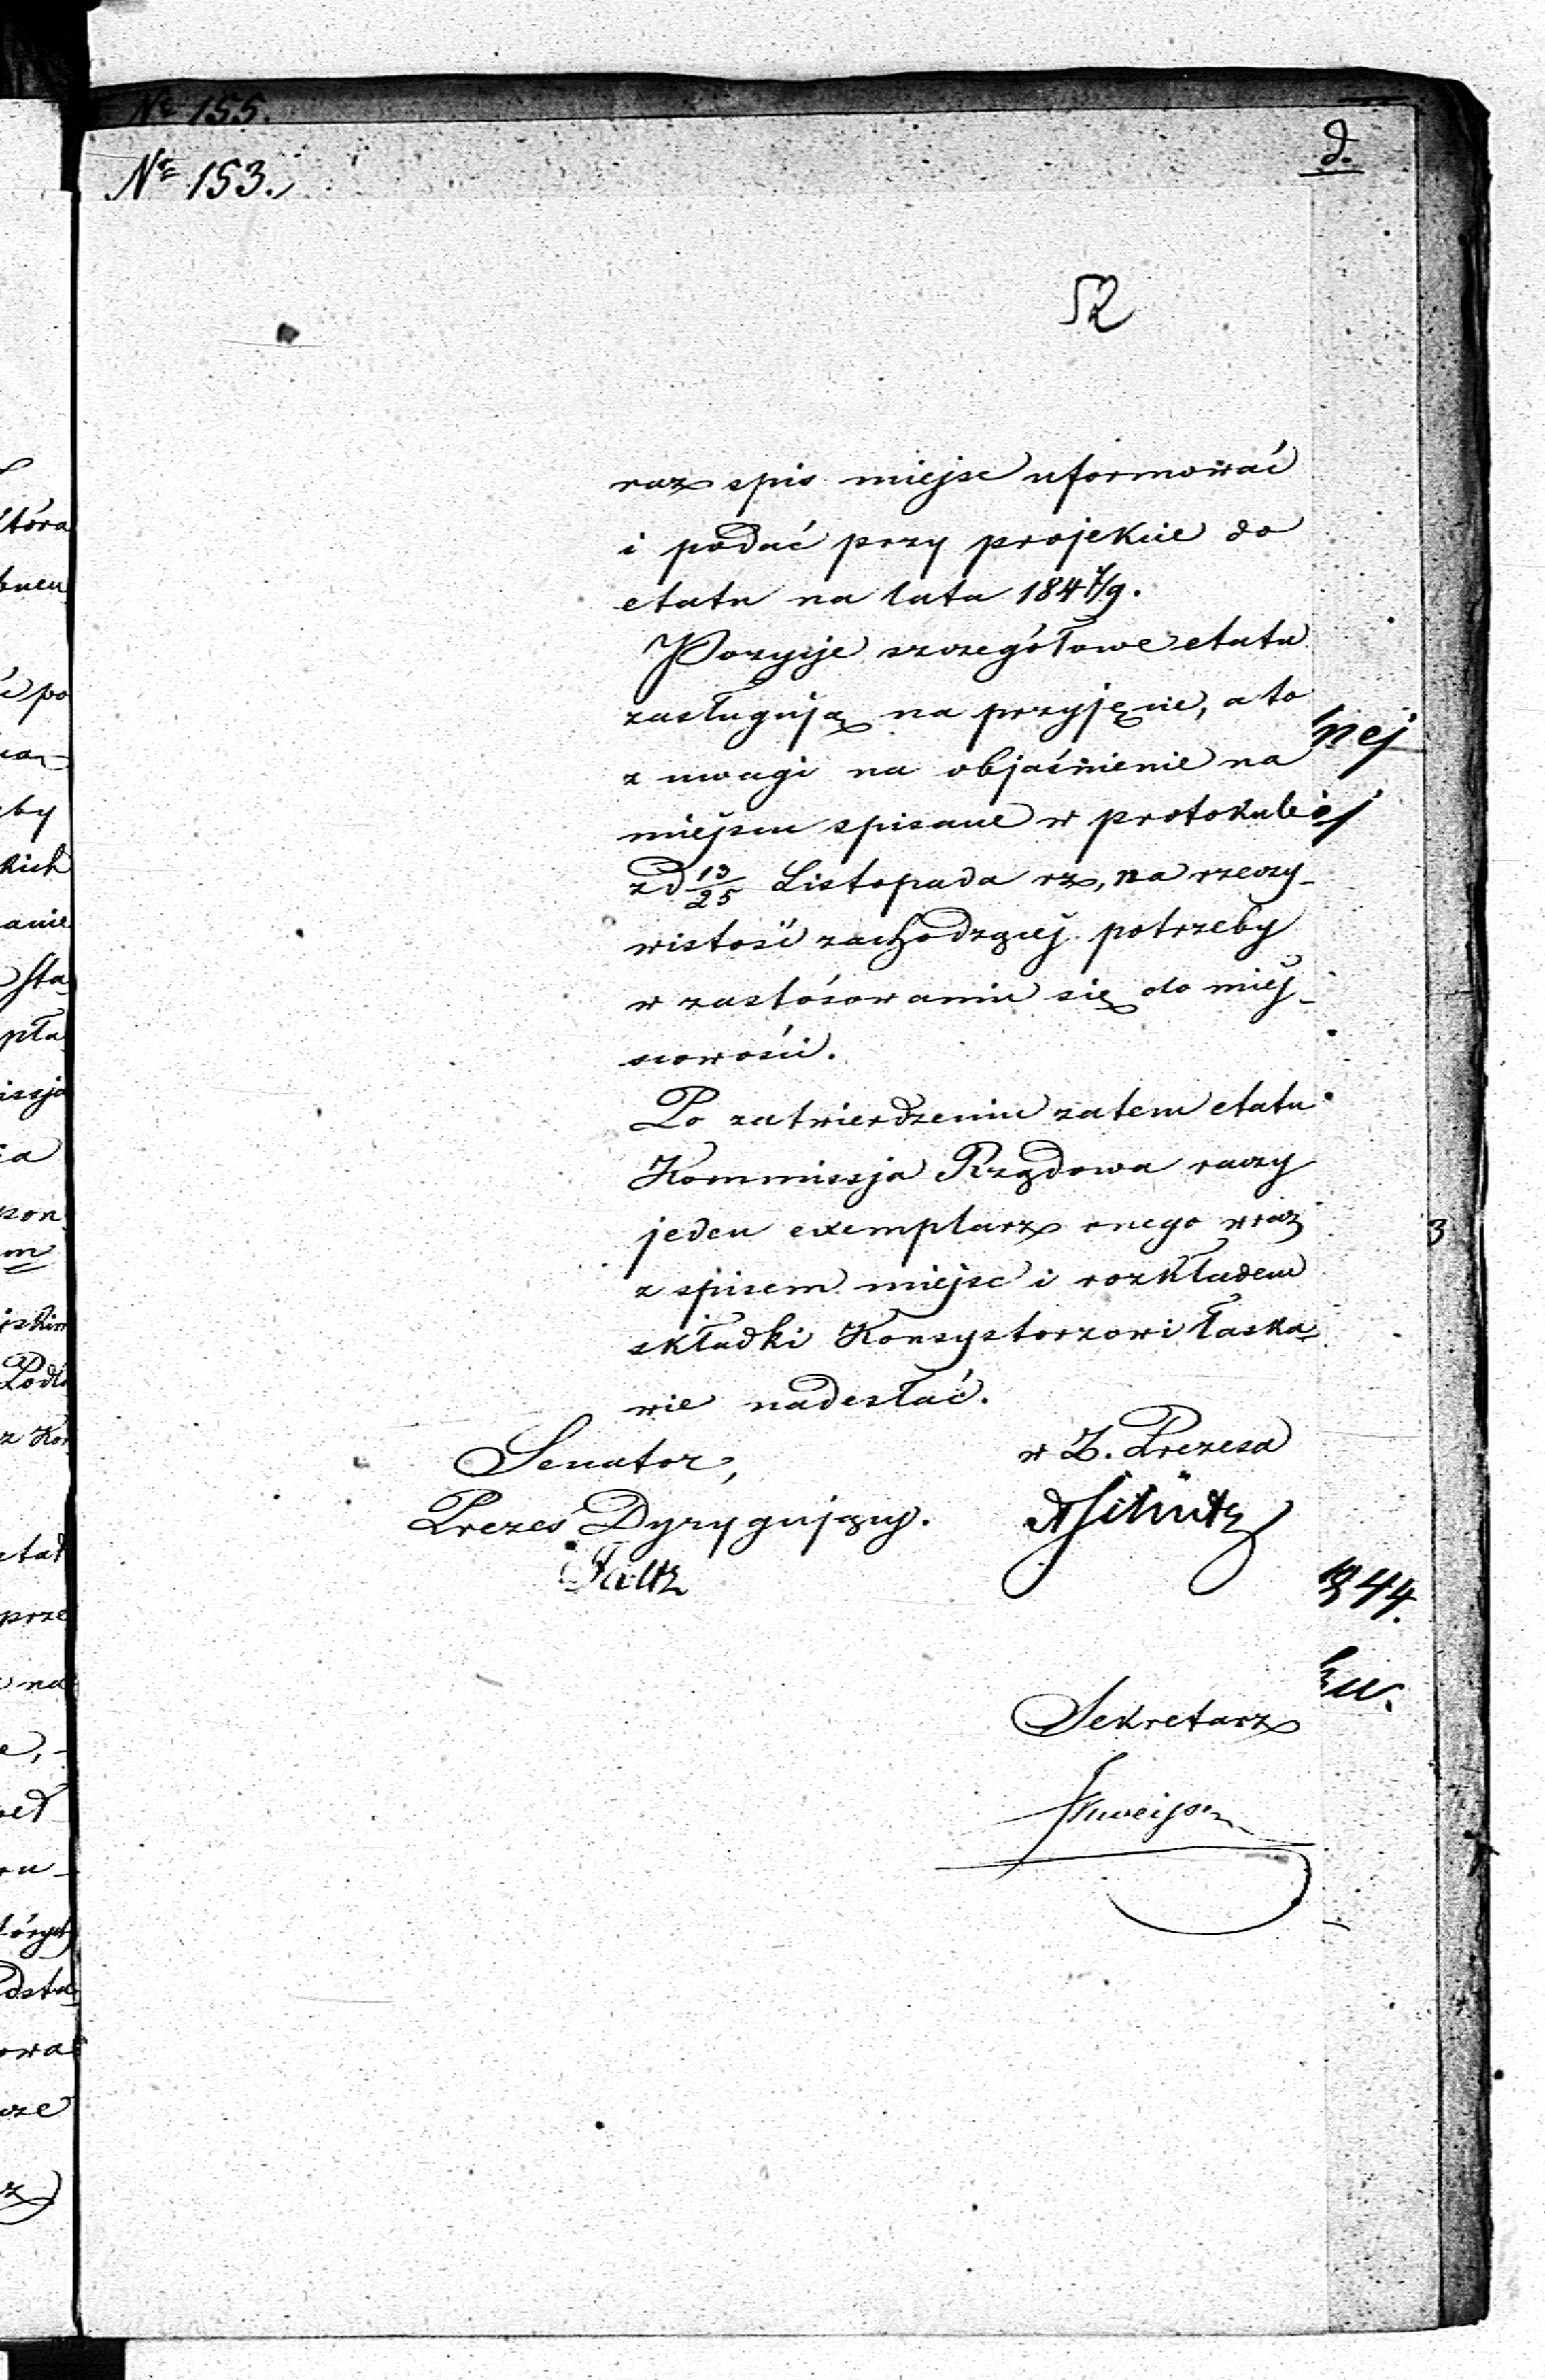 Nr 155.
Nr 153.
d.
52
raz spis miejsc uformować
i podać przy projekcie do
etatu na lata 184 7/9.
Pozycje szczegółowe etatu
zasługują na przyjęcie, a to
z uwagi na objaśnienie na
miejscu spisane w protokule
z d 13/25 Listopada rz, na rzeczy-
wistość zachodzącej potrzeby
w zastósowaniu się do miej-
scowości.
Po zatwierdzeniu zatem etatu
Kommissja Rządowa raczy
jeden exemplarz onego wraz
z spisem miejsc i rozkładem
składki Konsystorzowi łaska-
wie nadesłać.
Senator,
Prezes Dyrygujący.
w Z. Prezesa
Sekretarz
nej
ej
3
1844.